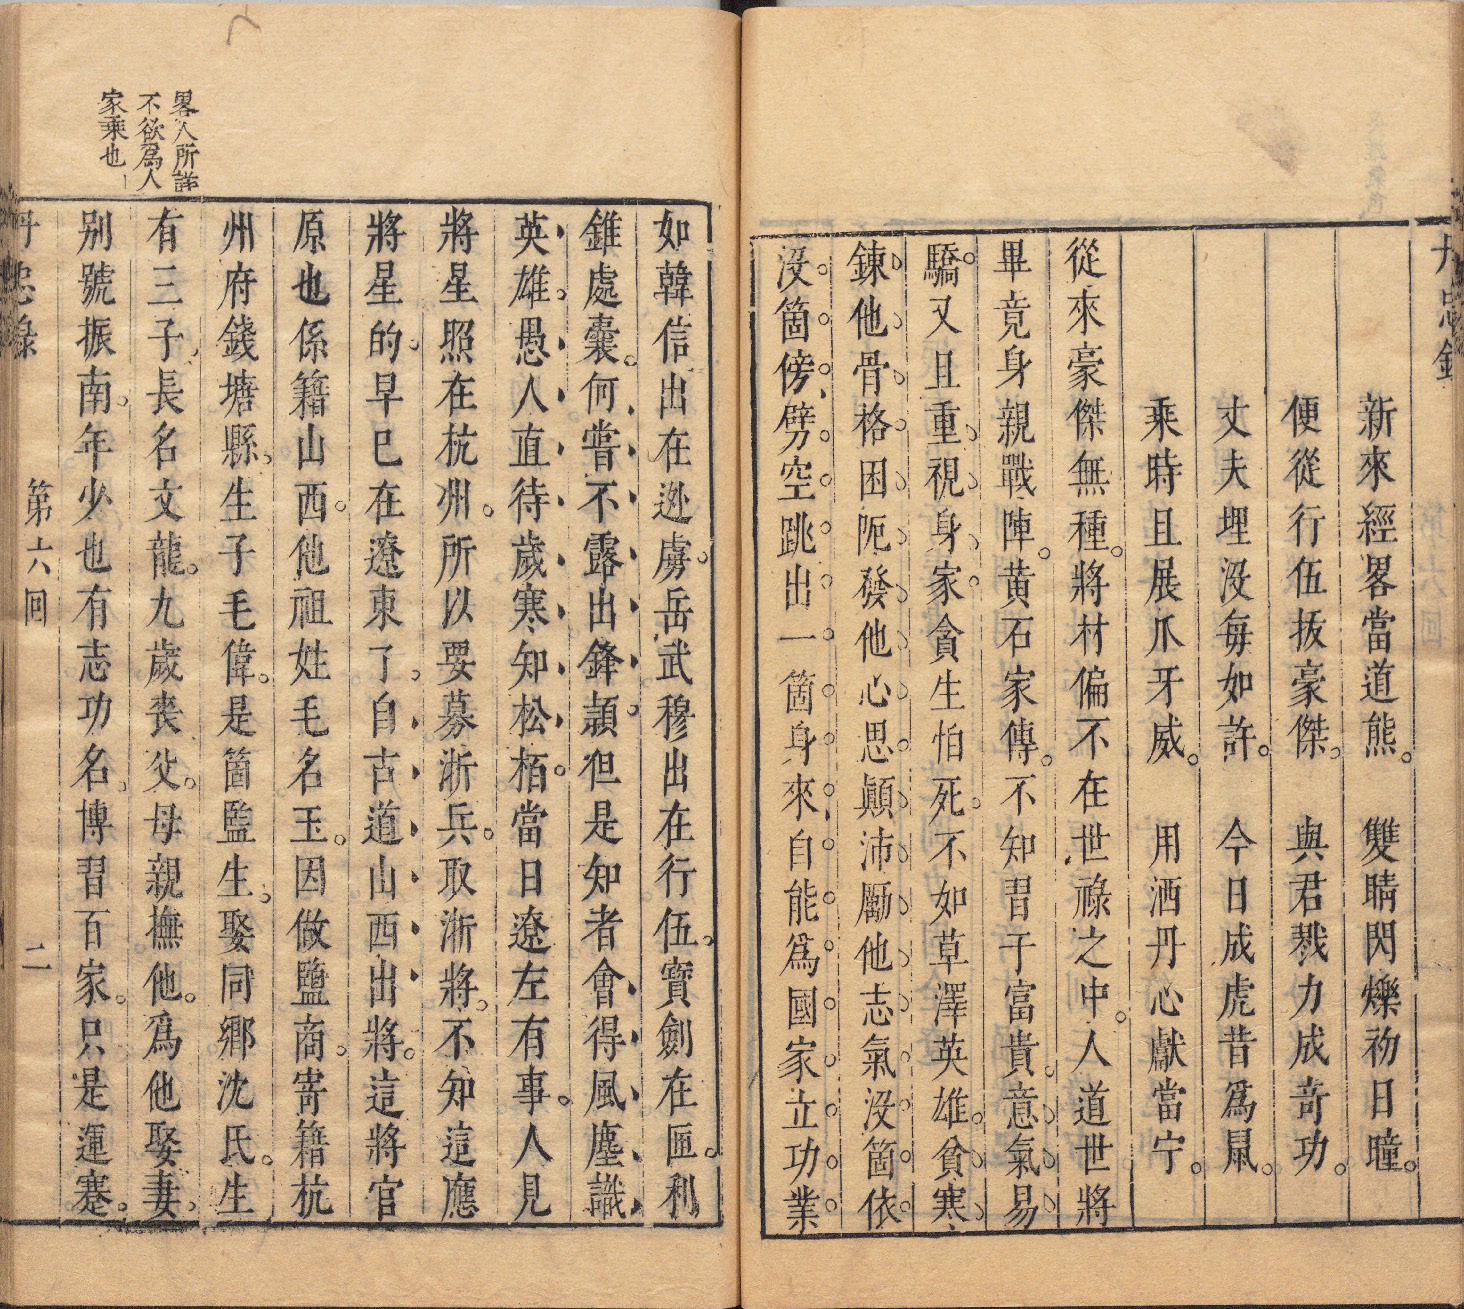 新來經畧當道熊。　雙睛閃爍初日曈。
便從行伍拔豪傑。　與君戮力成奇功。
丈夫埋没每如許。　今日成虎昔爲鼠。
乘時且展爪牙威。　用洒丹心獻當宁。
從來豪傑無種。將材偏不在世祿之中。人道世將
畢竟身親戰陣。黄石家傳。不知習于富貴。意氣易
驕。又且重視身家。貪生怕死。不如草澤英雄。貧寒
鍊他骨格。困阨發他心思。顛沛勵他志氣。没箇依
没箇傍。劈空跳出一箇身來。自能爲國家立功業
如韓信出在逊虜。岳武穆出在行伍。寶劍在匣。利
錐處囊。何嘗不露出鋒頴。但是知者會得。風塵識
英雄。愚人直待歲寒知松栢。當日遼左有事。人見
將星照在杭州。所以要募浙兵。取浙將。不知這應
將星的。早已在遼東了。自古道山西出將。這將官
原也係籍山西。他祖姓毛名玉。因做鹽商。寄籍杭
州府錢塘縣。生子毛偉。是箇監生。娶同鄉沈氏。生
有三子。長名文龍。九歲喪父。母親撫他。爲他娶妻。
别號振南。年少也有志功名。博習百家。只是運蹇。
畧人所詳
不欲爲人
家乘也
丹忠錄
第六回
二